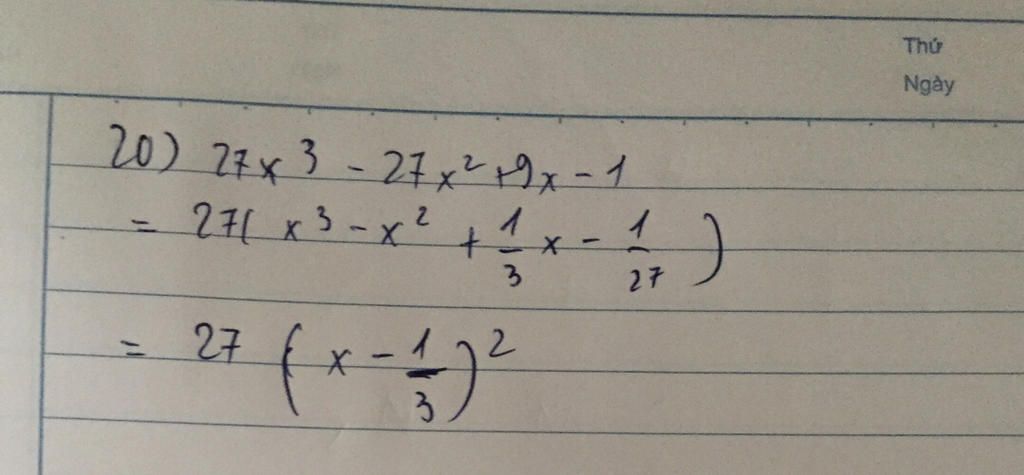 Thứ
Ngày
20) 27x³ - 27x² + 9x - 1
= 27( x³ - x² + 1/3 x - 1/27 )
= 27 ( x - 1/3 )²